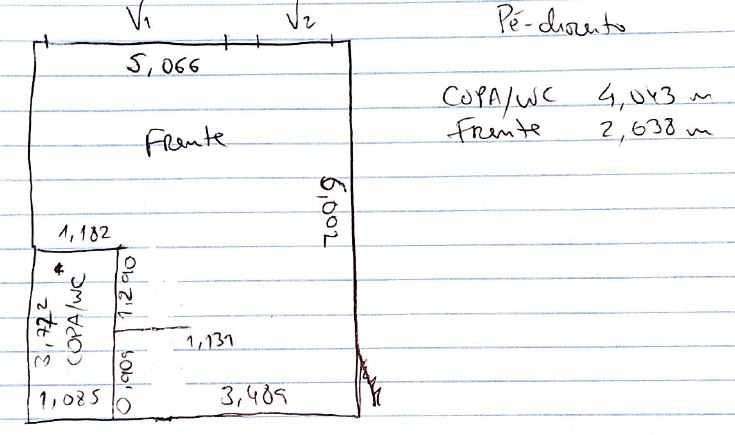 V1 V2
Pé-direito
5,066
COPA/WC 4,043 m
Frente
Frente 2,638 m
6,002
1,182
3,772
COPA/WC
1,290
1,131
0,909
1,085
3,489